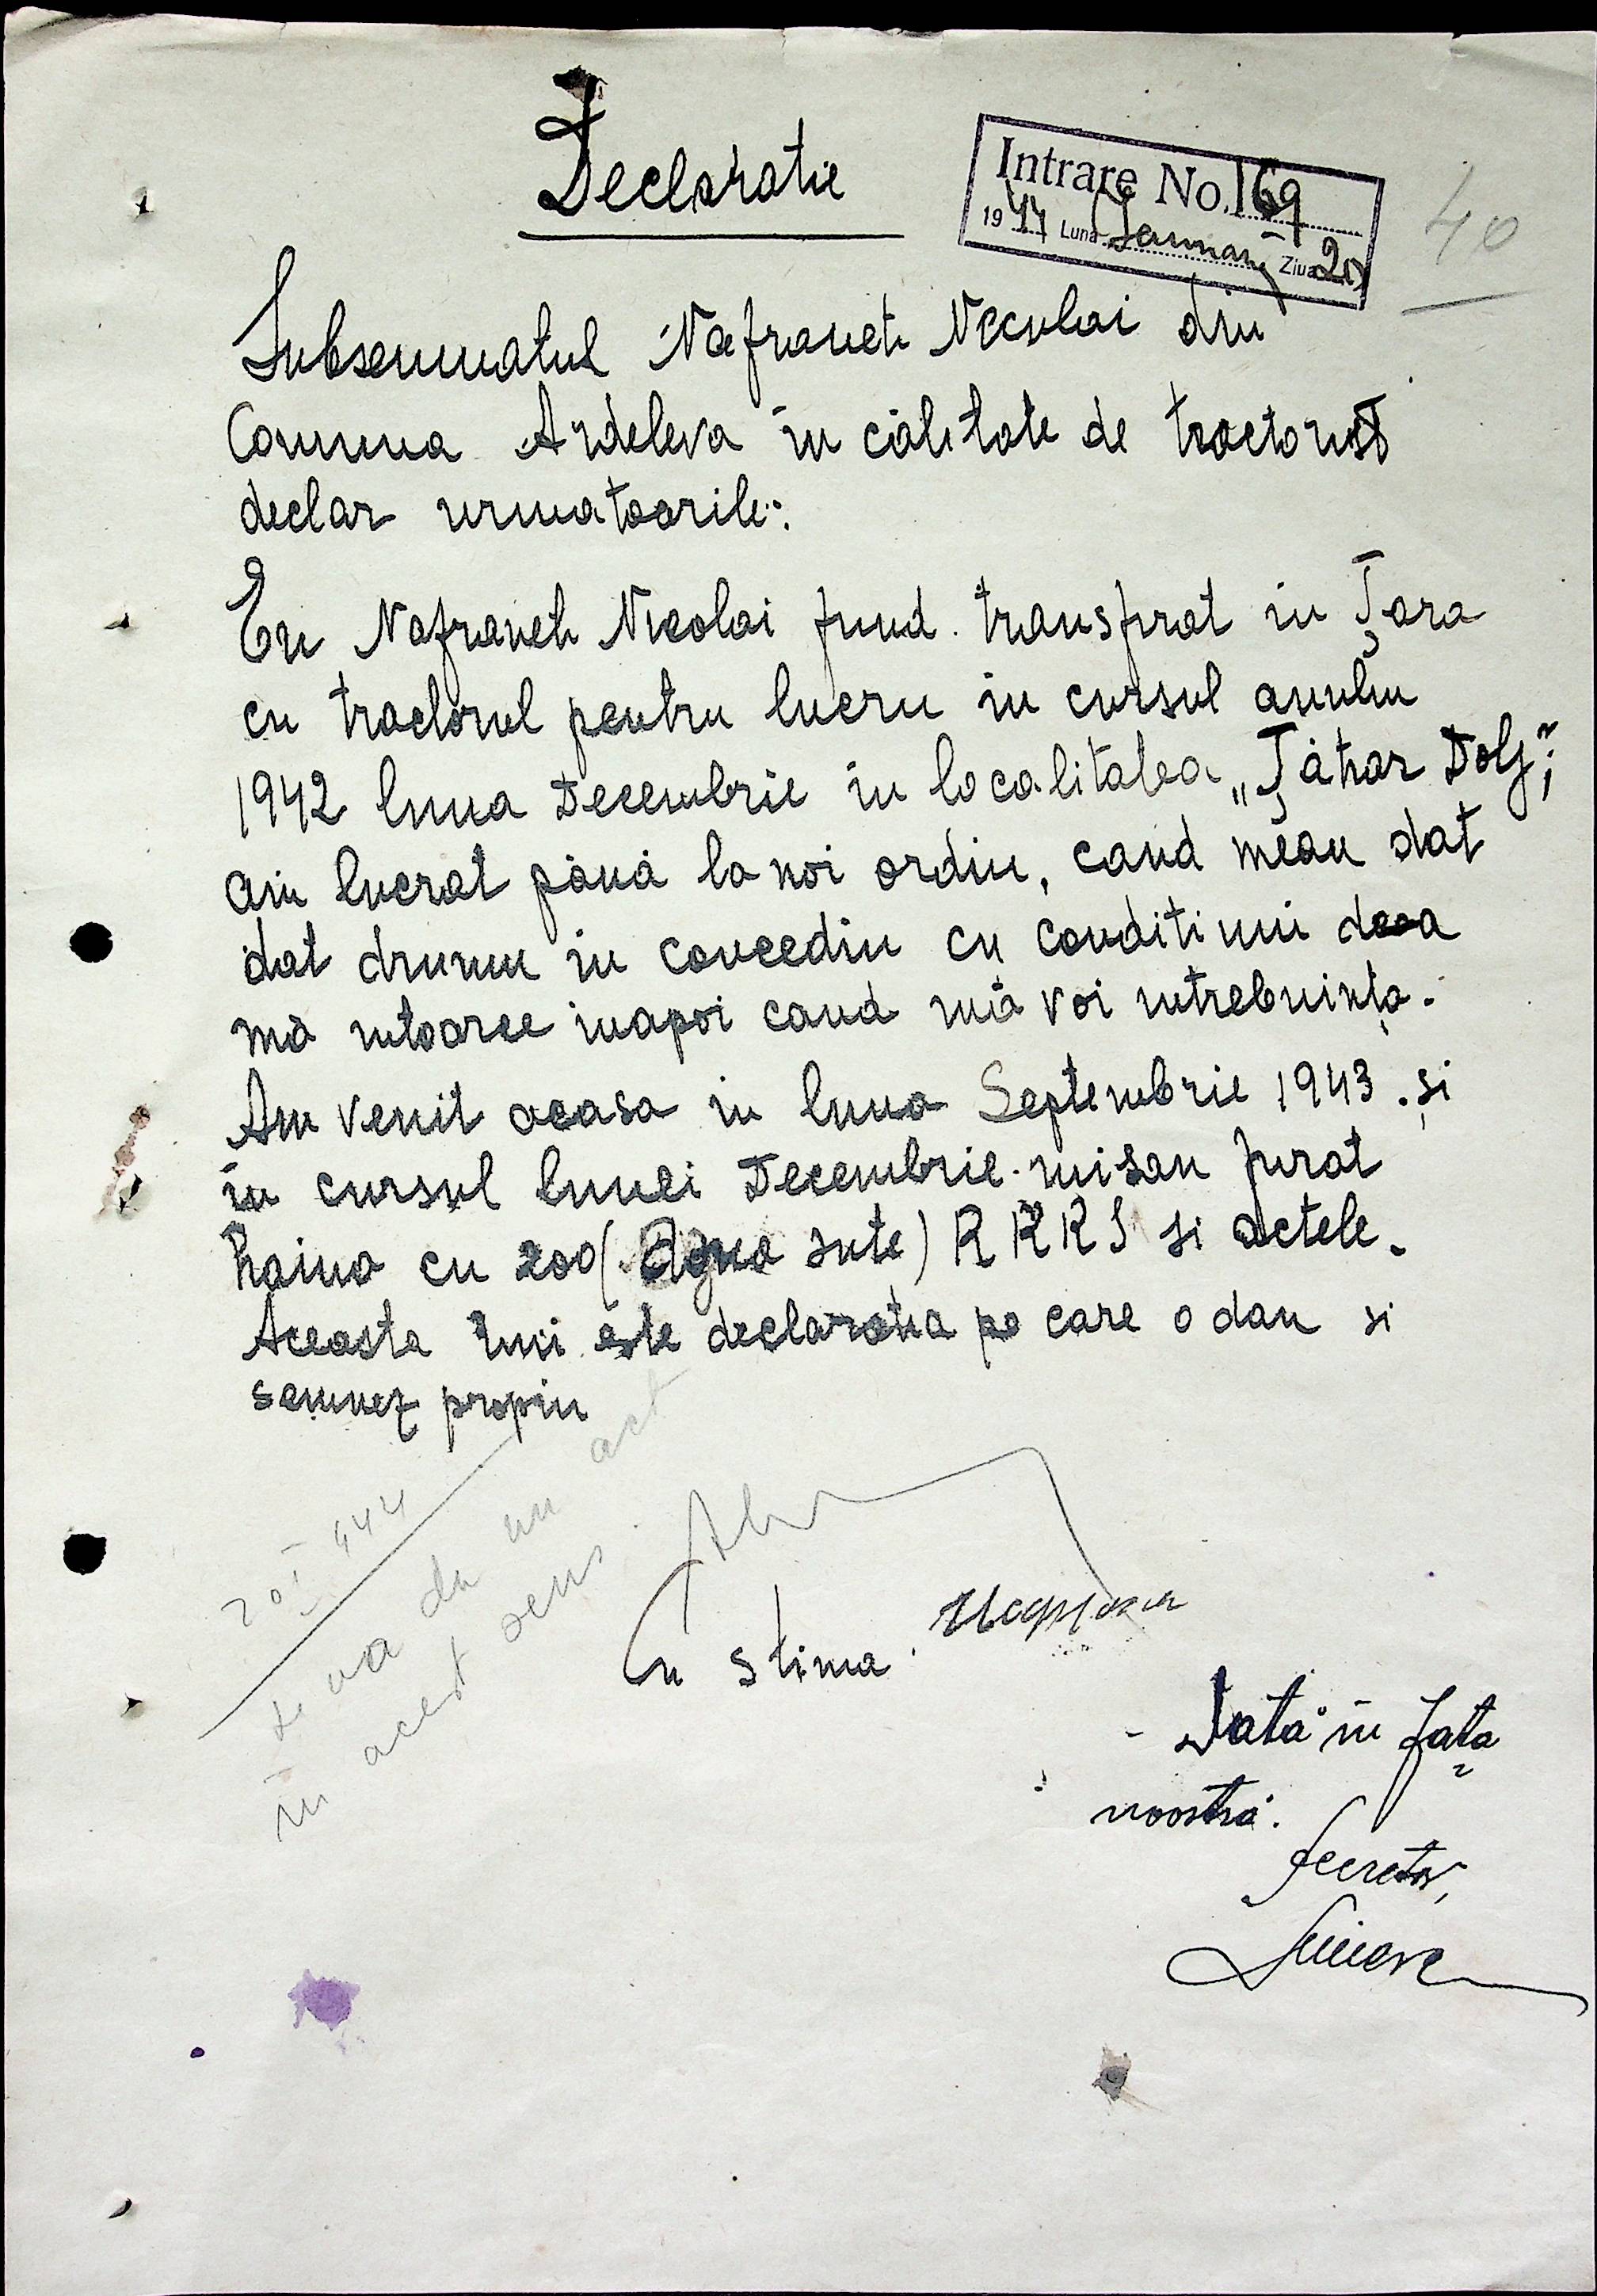 Declaratie
Intrare No. 169
1944 Luna Ianuarie Ziua 20
40
Subsemnatul Nafraneti Neculai din
Comuna Ardeleva in călitate de tractorist
declar urmatoarile:
Eu Nafraneti Nicolai fiind transfirat in Țara
cu tractorul pentru lucru in cursul anului
1942 luna Decembrie in localitatea „Țânțar Dolj";
am lucrat până la noi ordin, cand meau dat
dat drumu in conceediu cu conditiuni dea
mă intoarce inapoi cand mă voi intrebuința.
Am venit acasa in luna Septembrie 1943. și
in cursul lunei Decembrie mi sau furat
haina cu 200 (două sute) R K K S si actele.
Aceasta imi este declaratia pe care o dau si
semnez propiu
20 I 944
se va da un act
in acest sens.
Cu stima
- Dată in fața
noastră.
Secretar,